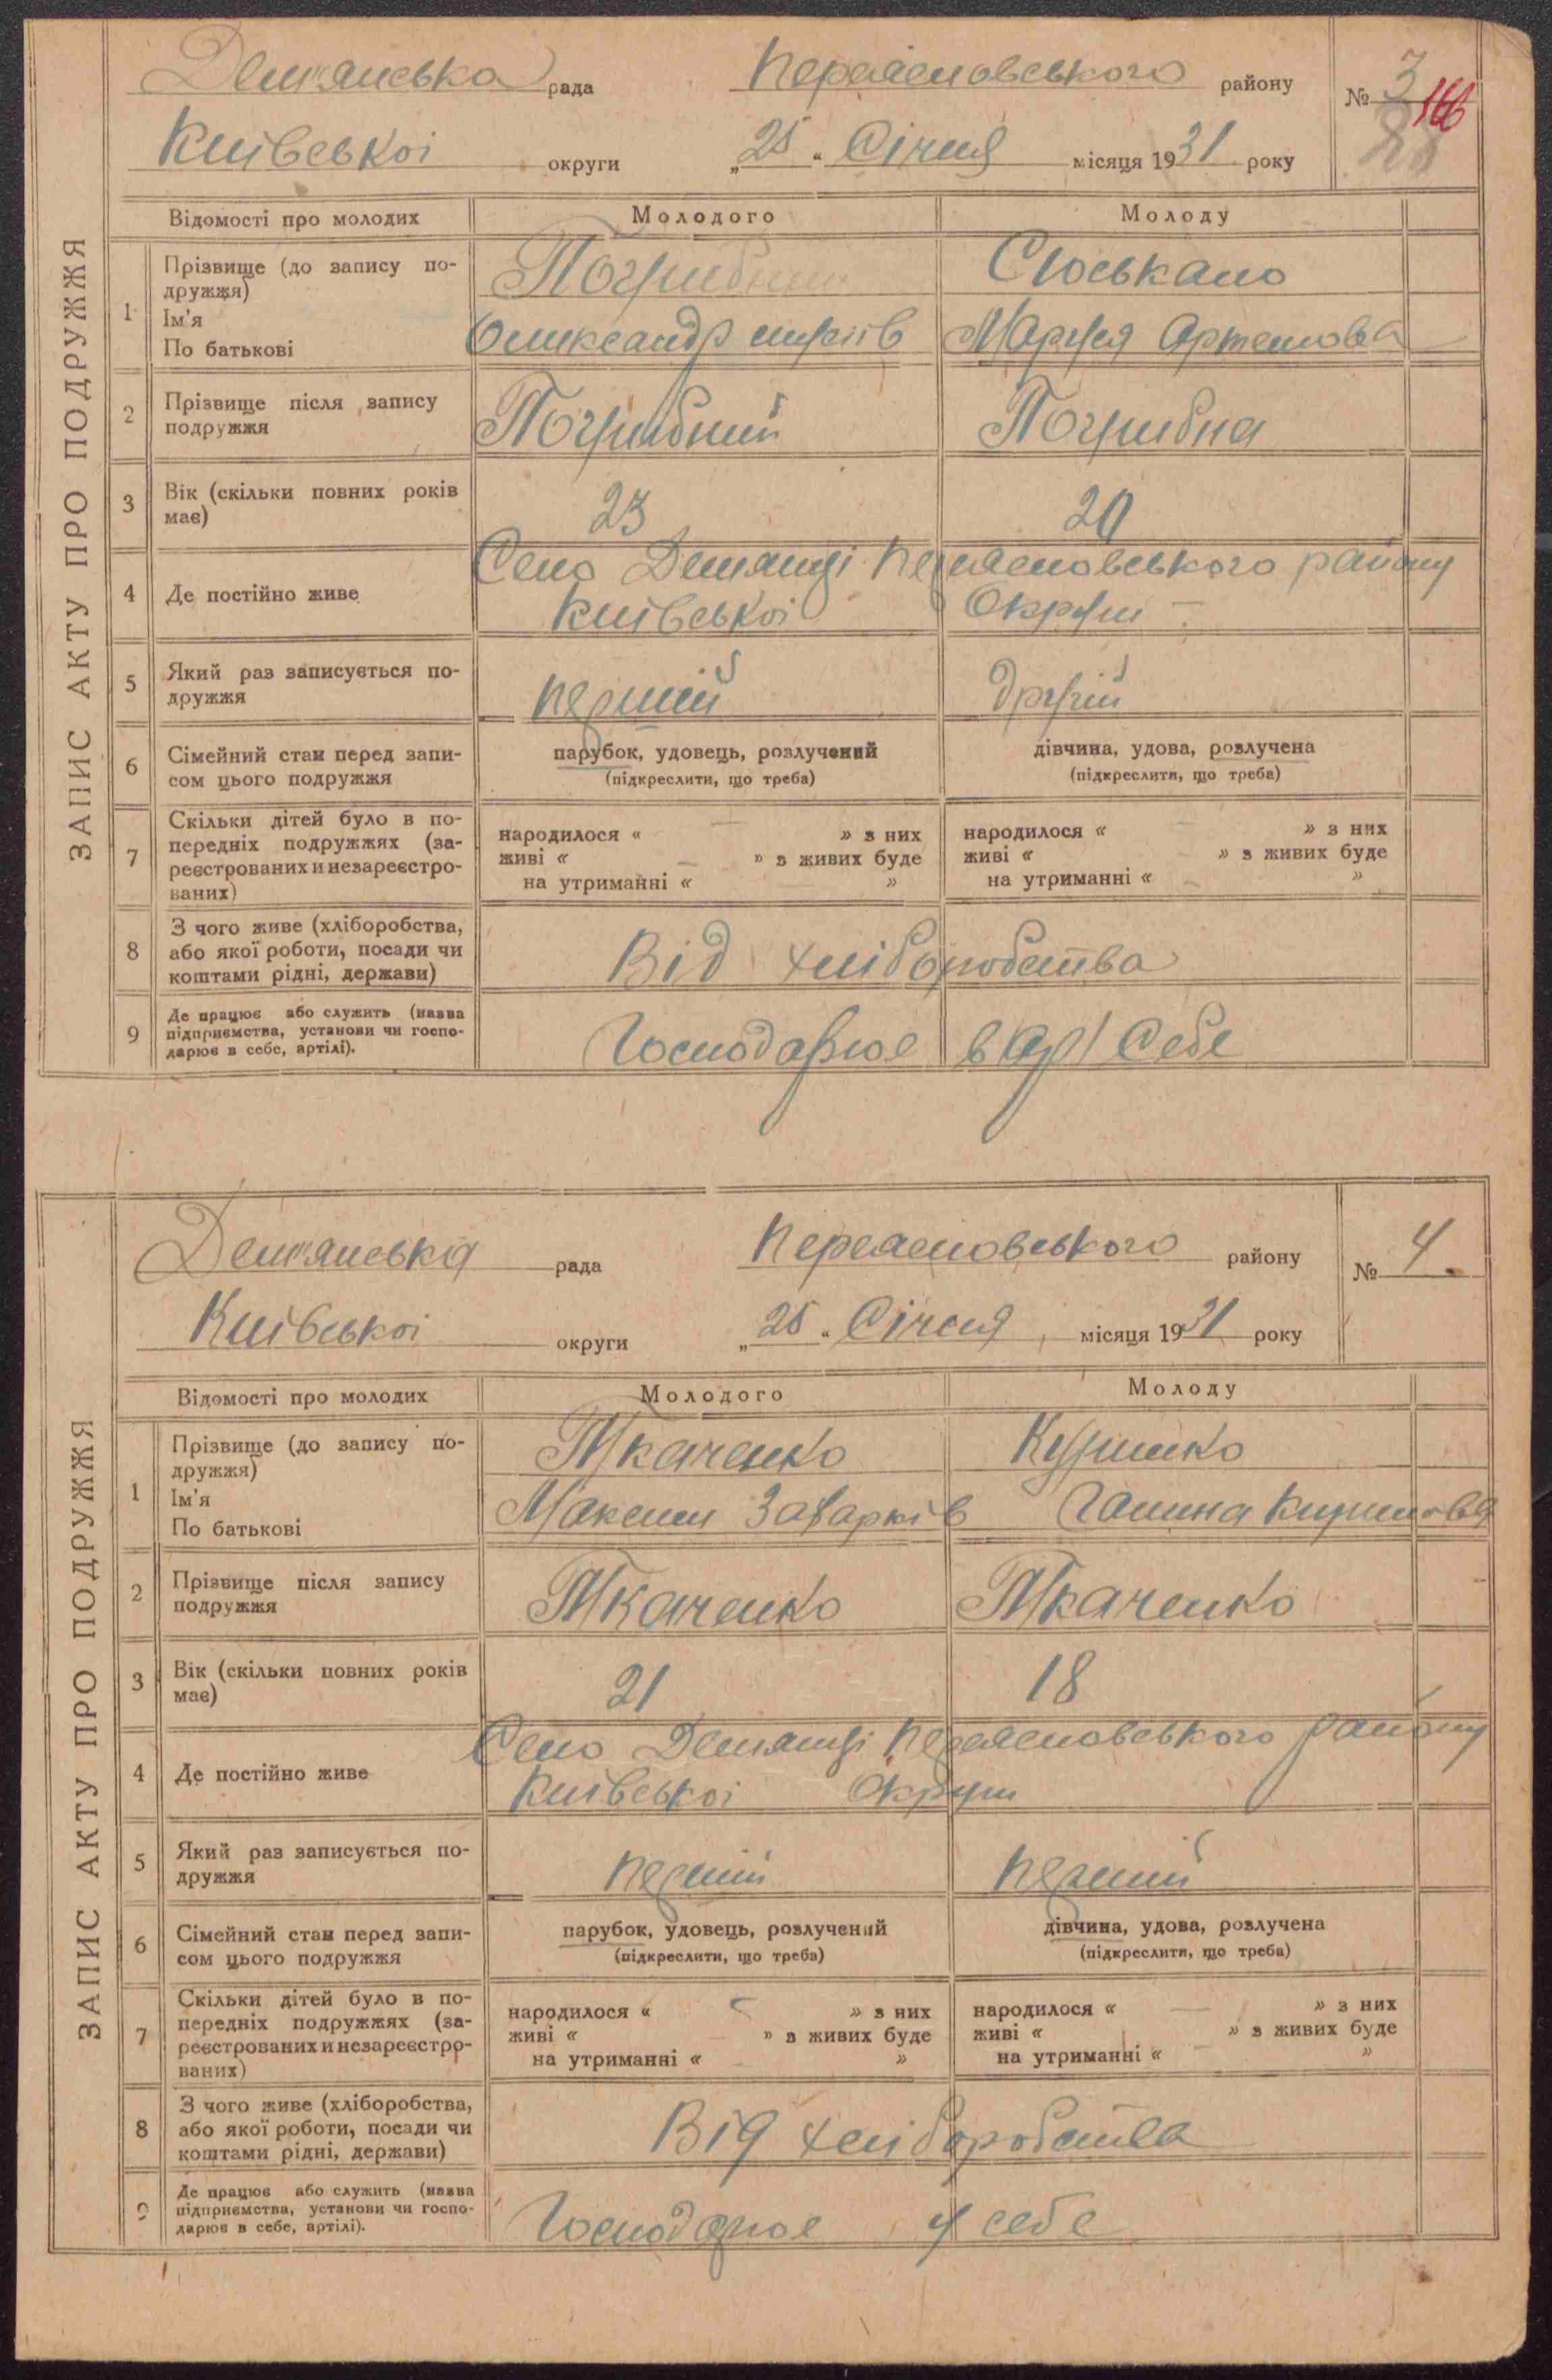 ЗАПИС АКТУ ПРО ПОДРУЖЖЯ
Дем'янська рада Переяславського району № 3 166
Київської округи „25“ Січня місяця 1931 року
Відомості про молодих Молодого Молоду
1 Прізвище (до запису по- Погрибний Сюськало
дружжя)
Ім'я Олександр Марфа Артемова
По батькові
2 Прізвище після запису Погрибний Погрибна
подружжя
3 Вік (скільки повних років 23 20
має)
Село Демянці Переяславського району
4 Де постійно живе Київської Округи
5 Який раз записується по- перший другій
дружжя
6 Сімейний стан перед запи- парубок, удовець, розлучений дівчина, удова, розлучена
сом цього подружжя (підкреслити, що треба) (підкреслити, що треба)
7 Скільки дітей було в по-
передніх подружжях (за- народилося « — » з них народилося « — » з них
реєстрованих и незареєстро- живі « — » з живих буде живі « » з живих буде
ваних) на утриманні « » на утриманні « — »
8 З чого живе (хліборобства,
або якої роботи, посади чи Від хліборобства
коштами рідні, держави)
9 Де працює або служить (назва
підприємства, установи чи госпо- Господарює в Себе
дарює в себе, артілі).
ЗАПИС АКТУ ПРО ПОДРУЖЖЯ
Дем'янська рада Переяславського району № 4.
Київської округи „25“ Січня місяця 1931 року
Відомості про молодих Молодого Молоду
1 Прізвище (до запису по- Ткаченко
дружжя)
Ім'я Максим Захарків Галина Кирилова
По батькові
2 Прізвище після запису Ткаченко Ткаченко
подружжя
3 Вік (скільки повних років 21 18
має)
Село Демянці Переяславського району
4 Де постійно живе Київської Округи
5 Який раз записується по- перший перший
дружжя
6 Сімейний стан перед запи- парубок, удовець, розлучений дівчина, удова, розлучена
сом цього подружжя (підкреслити, що треба) (підкреслити, що треба)
7 Скільки дітей було в по-
передніх подружжях (за- народилося « — » з них народилося « — » з них
реєстрованих и незареєстро- живі « » з живих буде живі « » з живих буде
ваних) на утриманні « » на утриманні « — »
8 З чого живе (хліборобства,
або якої роботи, посади чи Від хліборобства
коштами рідні, держави)
9 Де працює або служить (назва
підприємства, установи чи госпо- Господарює у себе
дарює в себе, артілі).